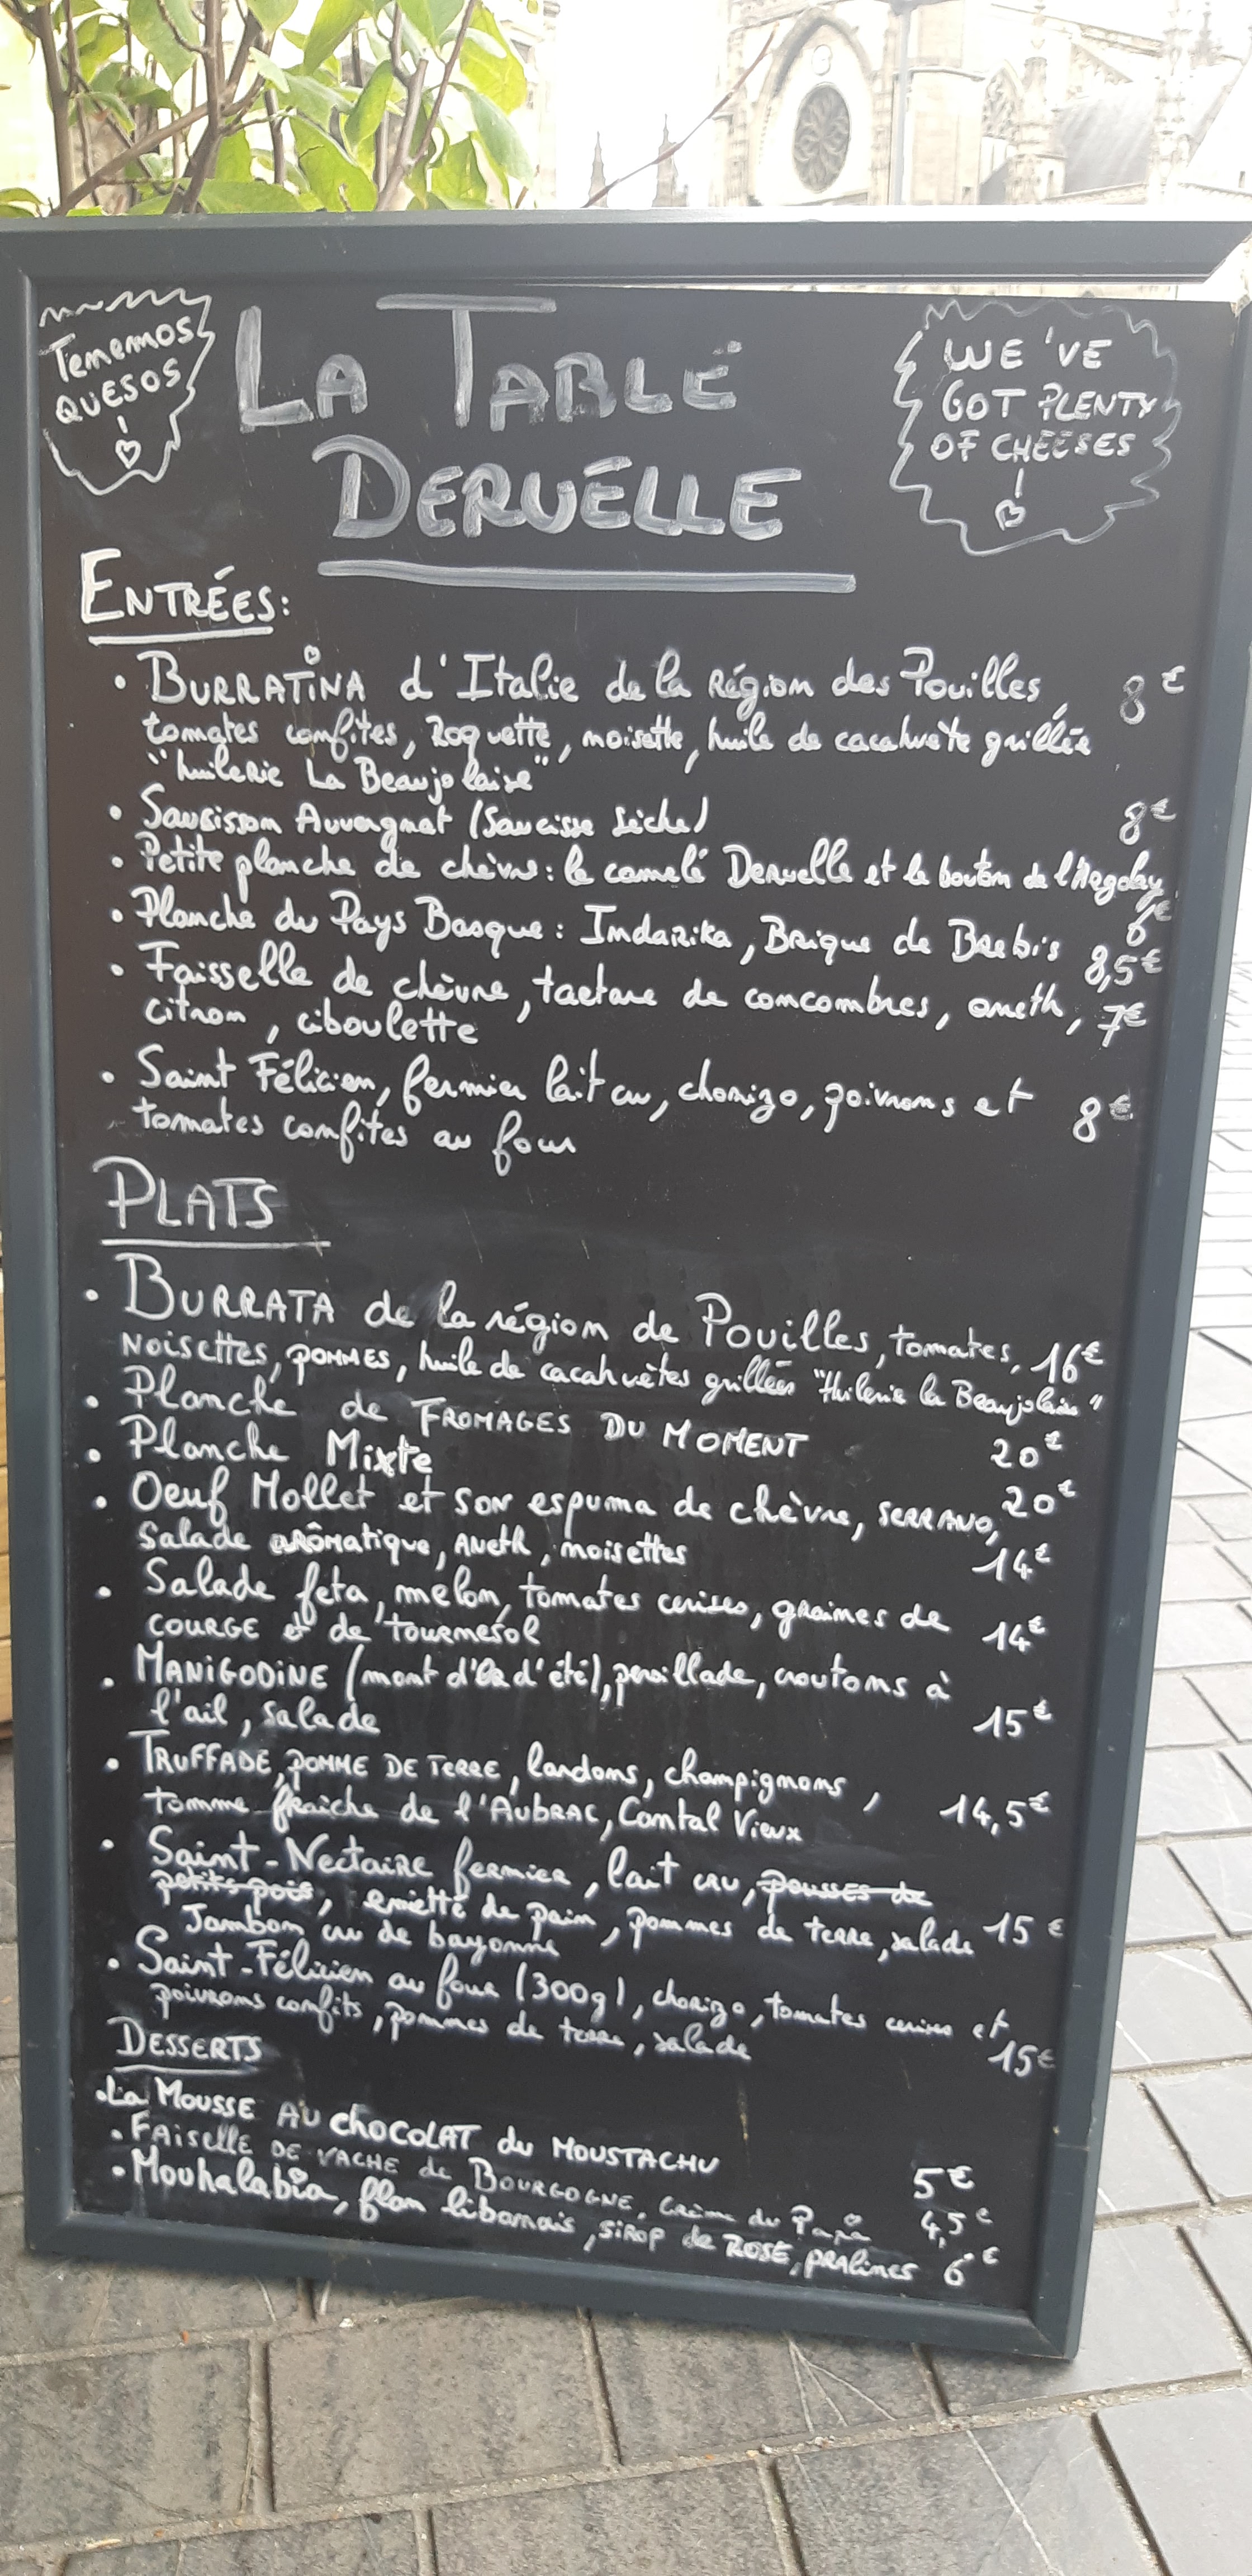 Tenemos
QUESOS
!
LA TABLE
DERUELLE
WE'VE
GOT PLENTY
OF CHEESES
!
ENTRÉES:
• BURRATINA d'Italie de la Région des Pouilles, 8€
tomates confites, Roquette, noisette, huile de cacahuète grillée
"huilerie La Beaujolaise"
• Saucisson Auvergnat (Saucisse Sèche) 8€
• Petite planche de chèvre: le camelé Deruelle et le bouton de l'Aegolay
6€
• Planche du Pays Basque: Indarika, Brique de Brebis 8,5€
• Faisselle de chèvre, tartare de concombres, aneth, 7€
citron, ciboulette
• Saint Félicien, fermier lait cru, chorizo, poivrons et 8€
tomates confites au four
PLATS
• BURRATA de la région de Pouilles, tomates, 16€
NOISETTES, POMMES, huile de cacahuètes grillées "Huilerie la Beaujolaise"
• Planche de FROMAGES DU MOMENT 20€
• Planche Mixte 20€
• Oeuf Mollet et son espuma de chèvre, SERRANO,
Salade arômatique, Aneth, noisettes 14€
• Salade feta, melon, tomates cerises, graines de
COURGE et de tournesol 14€
• MANIGODINE (mont d'or d'été), persillade, croutons à
l'ail, salade 15€
• TRUFFADE, POMME DE TERRE, lardons, champignons,
tomme fraîche de l'AUBRAC, Cantal Vieux 14,5€
• Saint-Nectaire fermier, lait cru, pousses de
petits pois, émietté de pain, pommes de terre, salade 15€
Jambon cru de bayonne
• Saint-Félicien au four (300g), chorizo, tomates cerises et
poivrons confits, pommes de terre, salade 15€
DESSERTS
• La MOUSSE AU chocOLAT du MOUSTACHU 5€
• FAISELLE DE VACHE de BOURGOGNE, Crème du Papa 4,5€
• Mouhalabia, flan libanais, SIROP de ROSE, pralines 6€